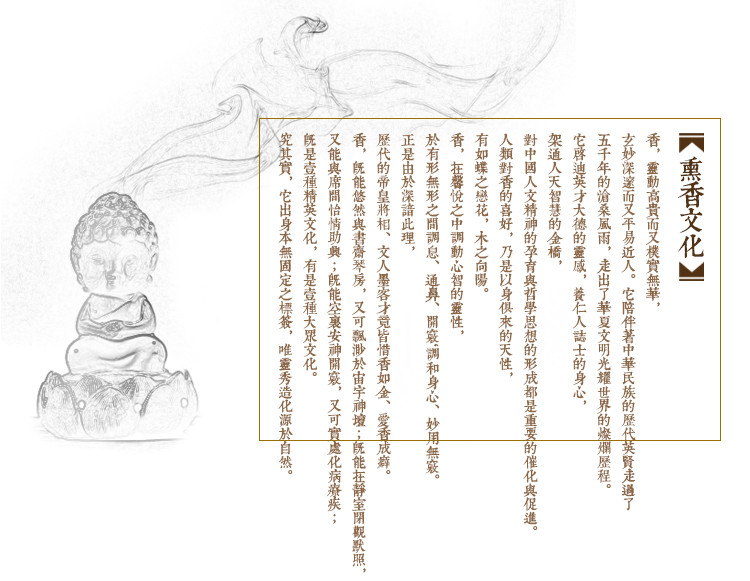 熏香文化
香，靈動高貴而又樸實無華，
玄妙深邃而又平易近人。它陪伴著中華民族的歷代英賢走過了
五千年的滄桑風雨，走出了華夏文明光耀世界的燦爛歷程。
它啓迪英才大德的靈感，養仁人誌士的身心，
架通人天智慧的金橋，
對中國人文精神的孕育與哲學思想的形成都是重要的催化與促進。
人類對香的喜好，乃是以身俱來的天性，
有如蝶之戀花，木之向陽。
香，在馨悅之中調動心智的靈性，
於有形無形之間調息、通鼻、開竅、調和身心、妙用無窮。
正是由於深諳此理，
歷代的帝皇將相、文人墨客才竟皆惜香如金、愛香成癖。
香，既能悠然與書齋琴房，又可飄渺於宙宇神壇；既能在靜室閉觀默照，
又能與席間怡情助興；既能空裏安神開竅，又可實處化病療疾；
既是壹種精英文化，有是壹種大眾文化。
究其實，它出身本無固定之標簽，唯靈秀造化源於自然。